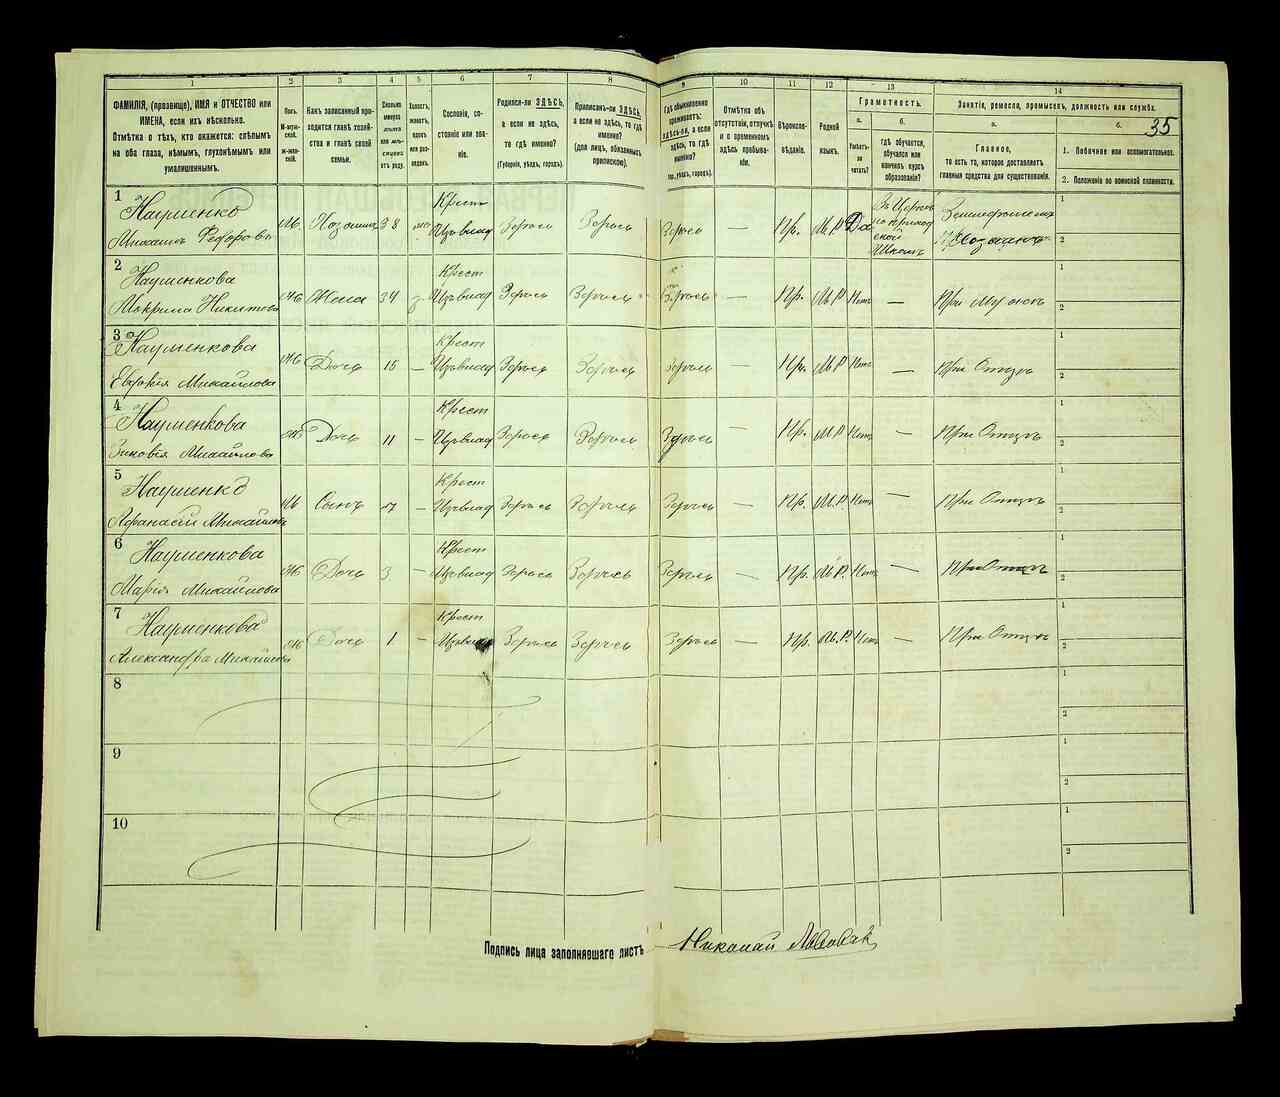 1 2 3 4 5 6 7 8 9 10 11 12 13 14
ФАМИЛІЯ, (прозвище), ИМЯ и ОТЧЕСТВО или
ИМЕНА, если ихъ нѣсколько.
Отмѣтка о тѣхъ, кто окажется: слѣпымъ
на оба глаза, нѣмымъ, глухонѣмымъ или
умалишеннымъ.
Полъ.
М-муж-
ской.
ж-жен-
скій.
Какъ записанный при-
ходится главѣ хозяй-
ства и главѣ своей
семьи.
Сколько
минуло
лѣтъ
или мѣ-
сяцевъ
отъ роду.
Холостъ,
женатъ,
вдовъ
или раз-
веденъ.
Сословіе, со-
стояніе или зва-
ніе.
Родился-ли ЗДѢСЬ,
а если не здѣсь,
то гдѣ именно?
(Губернія, уѣздъ, городъ).
Приписанъ-ли ЗДѢСЬ,
а если не здѣсь, то гдѣ
именно?
(для лицъ, обязанныхъ
припискою).
Гдѣ обыкновенно
проживаетъ:
здѣсь-ли, а если
не здѣсь, то гдѣ
именно?
уѣздъ, городъ).
Отмѣтка объ
отсутствіи, отлучкѣ
и о временномъ
здѣсь пребыва-
ніи.
Вѣроиспо-
вѣданіе.
Родной
языкъ.
Грамотность.
а.
Умѣетъ-
ли
читать?
б.
гдѣ обучается,
обучался или
кончилъ курсъ
образованія?
Занятія, ремесло, промыселъ, должность или служба.
а.
Главное,
то есть то, которое доставляетъ
главныя средства для существованія.
б. 35
1. Побочное или вспомогательное.
2. Положеніе по воинской повинности.
1 Науменко
Михаилъ Федоровъ М. Хозяинъ 38 Крест Здѣсь Здѣсь Здѣсь — Пр. М.Р. Да
Земледѣлецъ
Хозяинъ
1
2
2 Науменкова
Никитова Ж Жена 34 Крест Здѣсь Здѣсь Здѣсь — Пр. М.Р. Нетъ — При Мужѣ
1
2
3 Науменкова
Евдокія Михайлова Ж Дочь 15 — Крест Здѣсь Здѣсь Здѣсь — Пр. М.Р. Нетъ — При Отцѣ
1
2
4 Науменкова
Зиновія Михайлова Ж Дочь 11 — Крест Здѣсь Здѣсь Здѣсь — Пр. М.Р. Нетъ — При Отцѣ
1
2
5 Науменко
Афанасій Михайловъ М Сынъ 7 — Крест Здѣсь Здѣсь Здѣсь — Пр. М.Р. Нетъ — При Отцѣ
1
2
6 Науменкова
Марія Михайлова Ж Дочь 3 — Крест Здѣсь Здѣсь Здѣсь — Пр. М.Р. Нетъ — При Отцѣ
1
2
7 Науменкова
Александра Михайлова Ж Дочь 1 — Крест Здѣсь Здѣсь Здѣсь — Пр. М.Р. Нетъ — При Отцѣ
1
2
8
1
2
9
1
2
10
1
2
Подпись лица заполнявшаго листъ Николай